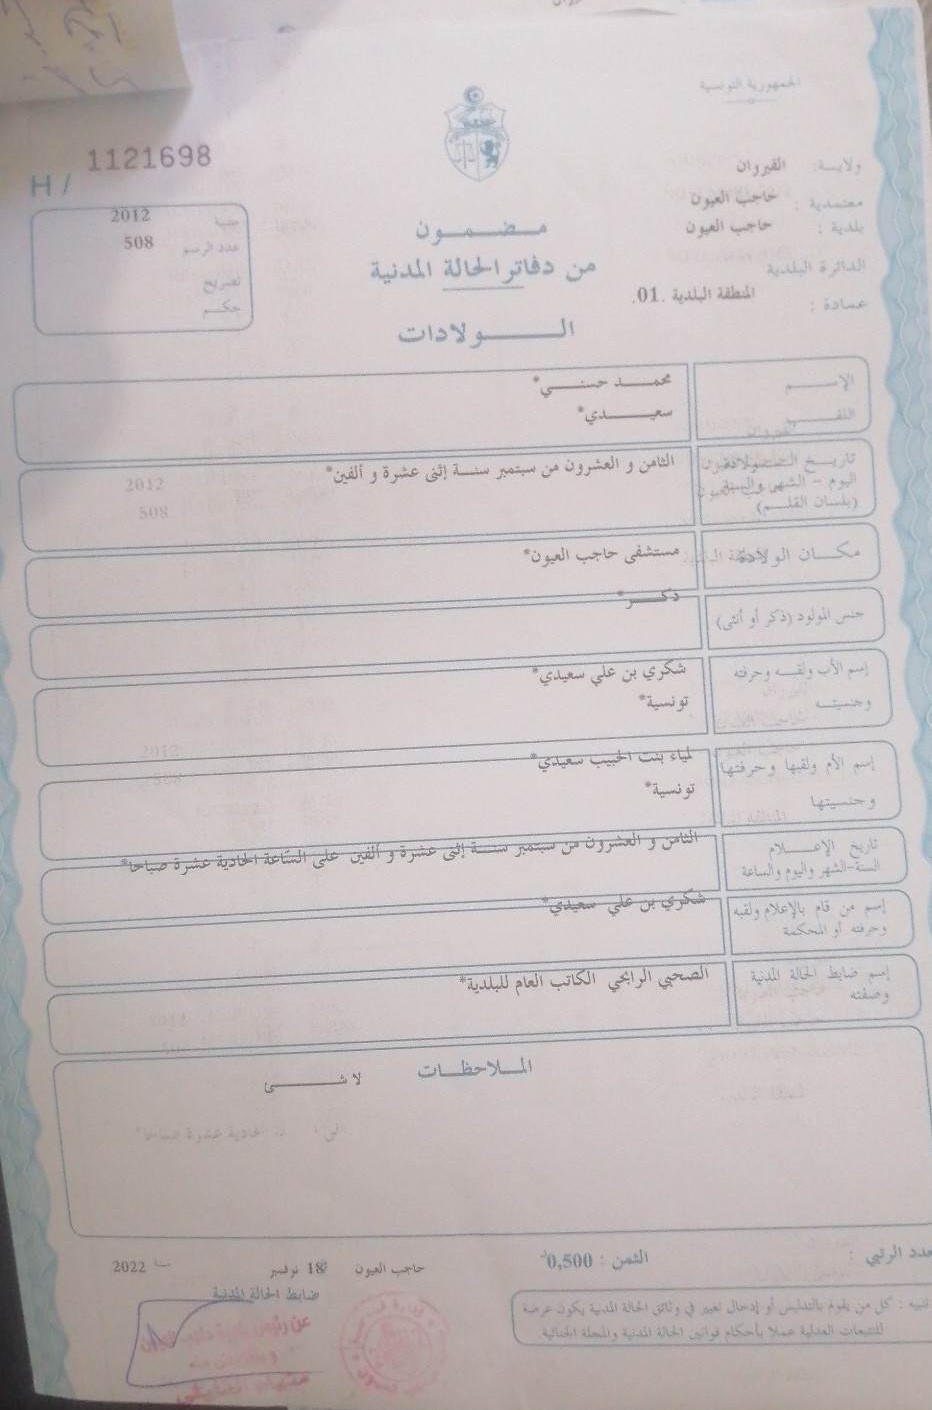 الجمهورية التونسية
H / 1121698
ولاية: القيروان
معتمدية : حاجب العيون
بلدية : حاجب العيون
الدائرة البلدية
المنطقة البلدية .01.
عمادة :
2012
عدد الرسم 508
تصريح
حكم
مضمون
من دفاتر الحالة المدنية
الولادات
الإسم محمد حسني*
اللقب سعيدي*
تاريخ الولادة
اليوم - الشهر والسنة
(بلسان القلم)
الثامن و العشرون من سبتمبر سنة إثنى عشرة و ألفين*
مكان الولادة مستشفى حاجب العيون*
جنس المولود (ذكر أو أنثى) ذكر*
إسم الأب ولقبه وحرفته شكري بن علي سعيدي*
وجنسيته تونسية*
إسم الأم ولقبها وحرفتها لمياء بنت الحبيب سعيدي*
وجنسيتها تونسية*
تاريخ الإعلام
السنة-الشهر واليوم والساعة
الثامن و العشرون من سبتمبر سنة إثنى عشرة و ألفين على الساعة الحادية عشرة صباحا*
إسم من قام بالإعلام ولقبه
وحرفته أو المحكمة
شكري بن علي سعيدي*
إسم ضابط الحالة المدنية
وصفته
الصحبي الرابحي الكاتب العام للبلدية*
الملاحظات
لا شئ
عدد الرتبي :
الثمن : 0,500د
حاجب العيون 18 نوفمبر 2022
ضابط الحالة المدنية
تنبيه : كل من يقوم بالتدليس أو إدخال تغيير في وثائق الحالة المدنية يكون عرضة
للتتبعات العدلية عملا بأحكام قوانين الحالة المدنية والمجلة الجنائية
عن رئيس بلدية حاجب العيون